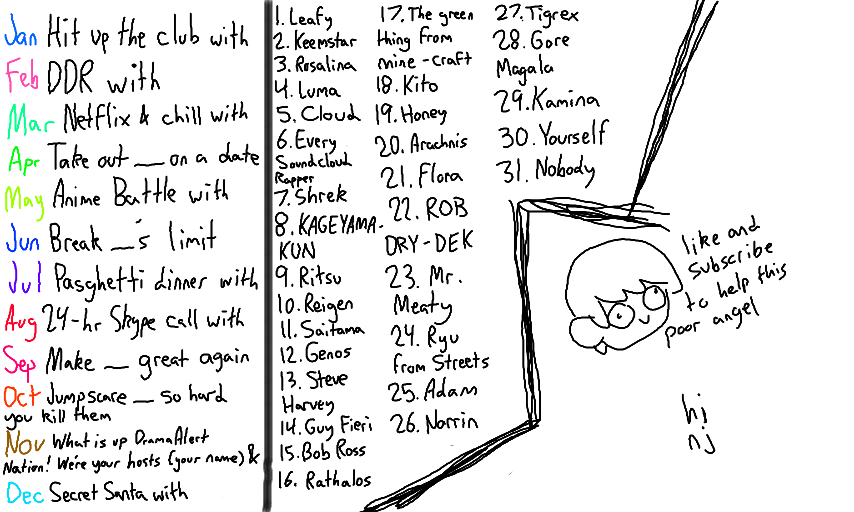 Jan Hit up the club with
Feb DDR with
Mar Netflix & chill with
Apr Take out __ on a date
May Anime Battle with
Jun Break __'s limit
Jul Pasghetti dinner with
Aug 24-hr Skype call with
Sep Make __ great again
Oct Jumpscare __ so hard
you kill them
Nov What is up DramaAlert
Nation! We're your hosts (your name) &
Dec Secret Santa with
1. Leafy
2. Keemstar
3. Rosalina
4. Luma
5. Cloud
6. Every
Soundcloud
Rapper
7. Shrek
8. KAGEYAMA-
KUN
9. Ritsu
10. Reigen
11. Saitama
12. Genos
13. Steve
Harvey
14. Guy Fieri
15. Bob Ross
16. Rathalos
17. The green
thing from
mine-craft
18. Kito
19. Honey
20. Arachnis
21. Flora
22. ROB
DRY-DEK
23. Mr.
Meaty
24. Ryu
from Streets
25. Adam
26. Norrin
27. Tigrex
28. Gore
Magala
29. Kamina
30. Yourself
31. Nobody
like and
subscribe
to help this
poor angel
hj
nj